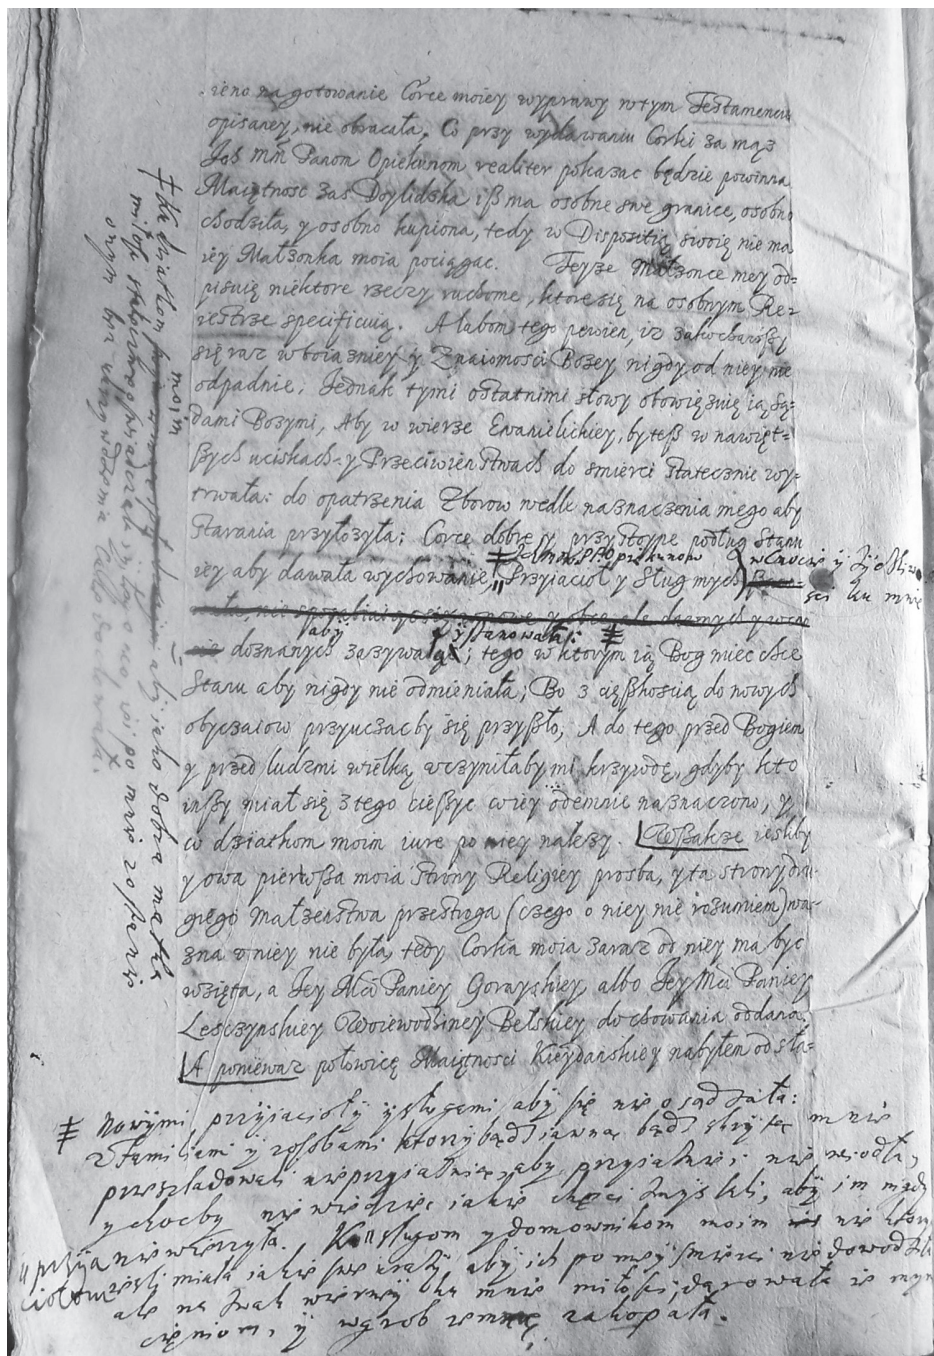 ieno na gotowanie Corce moiey wyprawy w tym Testamencie
opisaney, nie obracała, Co przy wydawaniu Corki za mąz
Ich Mm Panom Opiekunom realiter pokazac będzie powinna
Maiętnosc zas Doylidzka iß ma osobne swe granice, osobno
chodziła, y osobno kupiona, tedy w Dispositią swoię nie ma
iey Małzonka moia pociągac. Teyze Małzonce mey od=
pisuię niektore rzeczy ruchome, ktore się na osobnym Re=
iestrze specificuią. A lubom tego pewien, iz zakochawßy
się raz w boiazniey y Znaiomosci Bozey nigdy od niey nie
odpadnie; Jednak tymi ostatnimi słowy obowięzuię ią Są=
dami Bozymi, Aby w wierze Ewanielickiey, by teß w nawięt=
ßych uciskach y Przeciwienstwach do smierci statecznie wy=
trwała: do opatrzenia Zborow wedle naznaczenia mego aby
starania przyłozyła; Corce dobre y przystoyne podług Stanu
Ich Mm PP Opiekunow
w Cnocie y Zyczliwo
sci ku mnie
iey aby dawała wychowanie, Przyiacioł y Sług mych
aby y szanowała:
doznanych zazywała; tego w ktorym ią Bog miec chce
Stanu aby nigdy nie odmieniała; Bo z cięßkoscią do nowych
obyczaiow przyuczac by się przyßło, A do tego przed Bogiem
y przed ludzmi wielką uczyniłaby mi krzywdę, gdyby kto
inßy miał się z tego cießyc co iey odemnie naznaczono, y
co dziatkom moim iure po niey nalezy. Wßakze iesliby
y owa pierwßa moia strony Religiey prosba, y ta strony dru=
giego Małzenstwa przestroga (czego o niey nie rozumiem) wa=
zna u niey nie była, tedy Corka moia zaraz od niey ma byc
wzięta, a Jey Mci Paniey Gorayskiey, albo Jey Mci Paniey
Lesczynskiey Woiewodziney Bełskiey do chowania oddana.
A poniewaz połowicę Maiętnosci Kieydanskiey nabyłem od sła=
Nowymi przyiacioły y sługami aby się nie osadzała:
z familiami y zosobami ktorzy bądz iawnąc bądz skrytąc mnie
przeszladowali nieprzyiaznią, aby przyiazni nie wiodła,
y chocby niewiedziec iakie chęci zmyslali, aby im nigdy
nie wierzyła. sługom y domownikom moim
iesli miała iakie urazy, aby ich po mey smierci nie dowodziła
ale na znak wierney ku mnie miłosci, darowała ie mym
cieniom, y w grob zemną zakopała.
przyia
ciołom
Dziatkom
moim
aby jako dobra matka
miłosc stateczną
po mnie